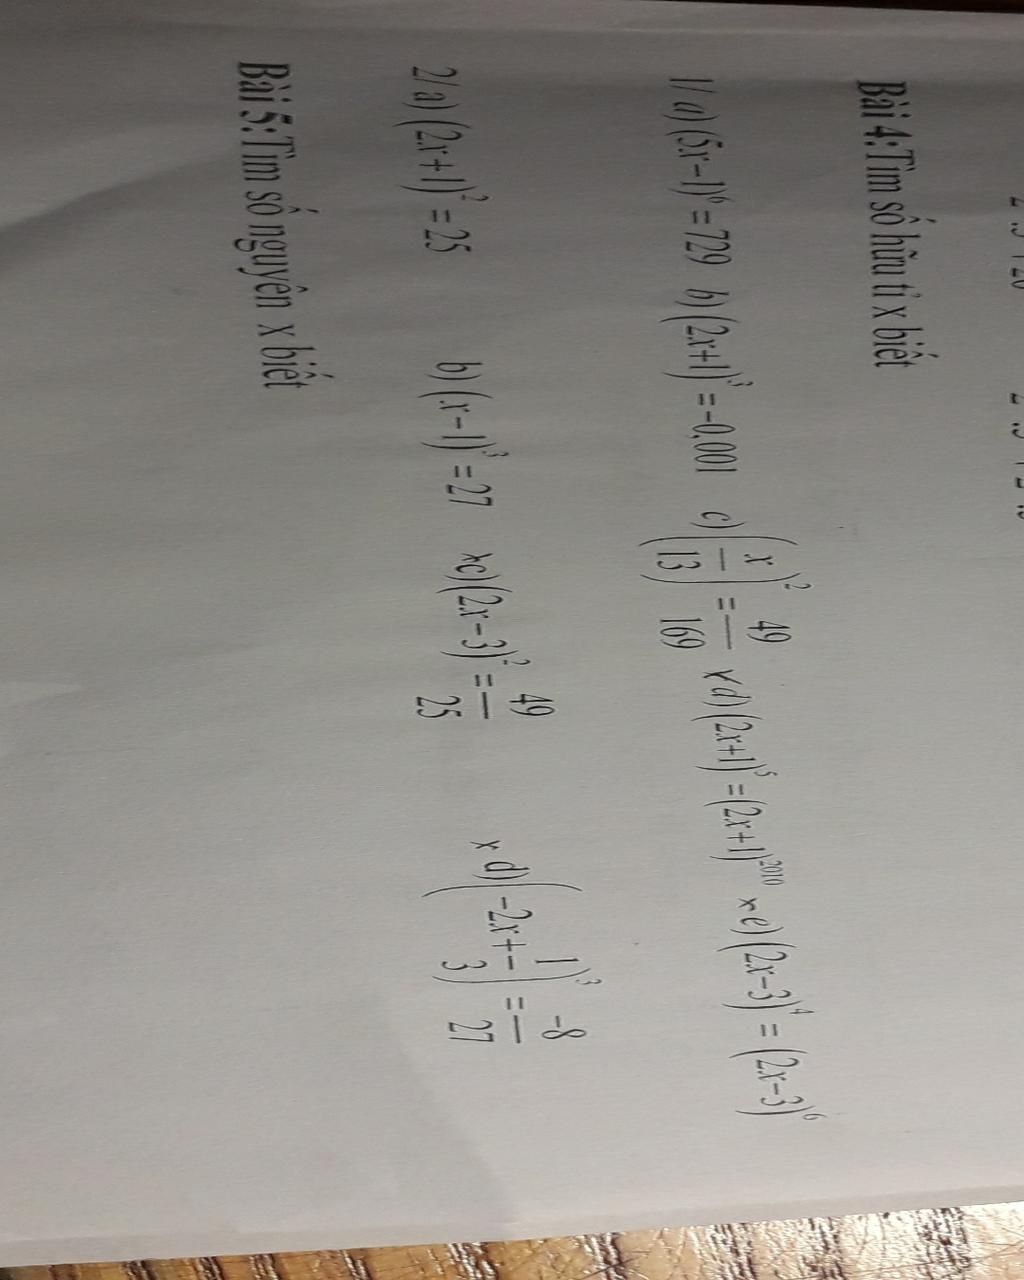 Bài 4:Tìm số hữu tỉ x biết
1/ a) (5x−1)⁶ = 729 b) (2x+1)³ = −0,001 c) (x/13)² = 49/169 x d) (2x+1)⁵ = (2x+1)²⁰¹⁰ x e) (2x−3)⁴ = (2x−3)⁶
2/ a) (2x+1)² = 25 b) (x−1)³ = 27 xc) (2x−3)² = 49/25 x d) (−2x+1/3)³ = −8/27
Bài 5:Tìm số nguyên x biết